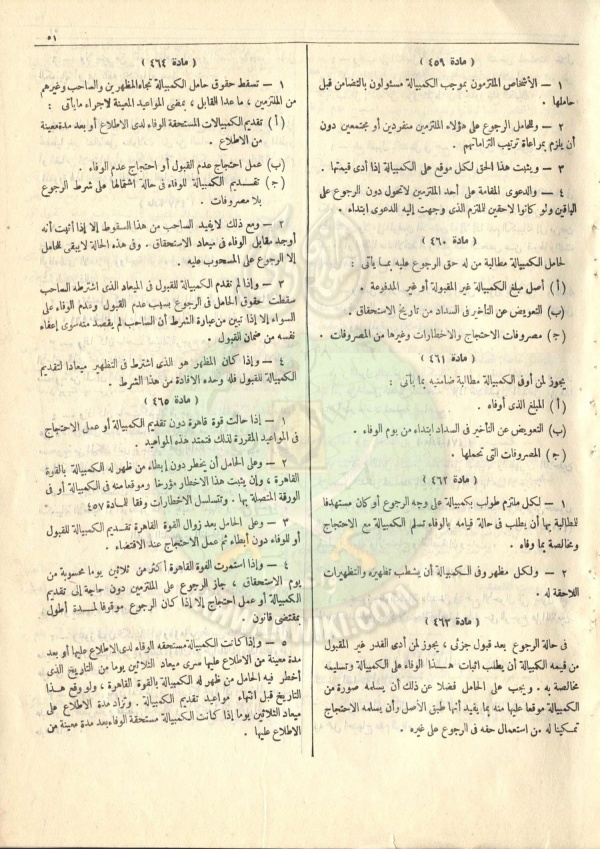 ٥١
( مادة ٤٥٩ )
١ — الأشخاص الملتزمون بموجب الكمبيالة مسئولون بالتضامن قبل
حاملها .
٢ — وللحامل الرجوع على هؤلاء الملتزمين منفردين أو مجتمعين دون
أن يلزم بمراعاة ترتيب التزاماتهم .
٣ — ويثبت هذا الحق لكل موقع على الكمبيالة إذا أدى قيمتها .
٤ — والدعوى المقامة على أحد الملتزمين لاتحول دون الرجوع على
الباقين ولو كانوا لاحقين للملتزم الذى وجهت إليه الدعوى ابتداء .
( مادة ٤٦٠ )
لحامل الكمبيالة مطالبة من له حق الرجوع عليه بمـا يأتى :
( أ ) أصل مبلغ الكمبيالة غير المقبولة أو غير المدفوعة .
(ب) التعويض عن التأخير فى السداد من تاريخ الاستحقاق .
(ج) مصروفات الاحتجاج والاخطارات وغيرها من المصروفات .
( مادة ٤٦١ )
يجوز لمن أوفى الكمبيالة مطالبة ضامنيه بما يأتى :
( أ ) المبلغ الذى أوفاه .
(ب) التعويض عن التأخير فى السداد ابتداء من يوم الوفاء .
(ج) المصروفات التى تحملها .
( مادة ٤٦٢ )
١ — لكل ملتزم طولب بكمبيالة على وجه الرجوع أو كان مستهدفا
للمطالبة بها أن يطلب فى حالة قيامه بالوفاء تسلم الكمبيالة مع الاحتجاج
ومخالصة بما وفاه .
٢ — ولكل مظهر وفى الكمبيالة أن يشطب تظهيره والتظهيرات
اللاحقة له .
( مادة ٤٦٣ )
فى حالة الرجوع بعد قبول جزئى ، يجوز لمن أدى القدر غير المقبول
من قيمه الكمبيالة أن يطلب اثبات هذا الوفاء على الكمبيالة وتسليمه
مخالصة به . ويجب على الحامل فضلا عن ذلك أن يسلمه صورة من
الكمبيالة موقعا عليها منه بما يفيد أنها طبق الأصل وأن يسلمه الاحتجاج
تمكينا له من استعمال حقه فى الرجوع على غيره .
( مادة ٤٦٤ )
١ — تسقط حقوق حامل الكمبيالة تجاه المظهرين والساحب وغيرهم
من الملتزمين ، ما عدا القابل ، بمضى المواعيد المعينة لاجراء ما يأتى :
( أ ) تقديم الكمبيالات المستحقة الوفاء لدى الاطلاع أو بعد مدة معينة
من الاطلاع .
(ب) عمل احتجاج عدم القبول أو احتجاج عدم الوفاء .
(ج) تقديم الكمبيالة للوفاء فى حالة اشتمالها على شرط الرجوع
بلا مصروفات .
٢ — ومع ذلك لايفيد الساحب من هذا السقوط إلا إذا أثبت أنه
أوجد مقابل الوفاء فى ميعاد الاستحقاق . وفى هذه الحالة لا يبقى للحامل
إلا الرجوع على المسحوب عليه .
٣ — وإذا لم تقدم الكمبيالة للقبول فى الميعاد الذى اشترطه الساحب
سقطت حقوق الحامل فى الرجوع بسبب عدم القبول وعدم الوفاء على
السواء إلا إذا تبين من عبارة الشرط أن الساحب لم يقصد منه سوى إعفاء
نفسه من ضمان القبول .
٤ — وإذا كان المظهر هو الذى اشترط فى التظهير ميعادا لتقديم
الكمبيالة للقبول فله وحده الافادة من هذا الشرط .
( مادة ٤٦٥ )
١ — إذا حالت قوة قاهرة دون تقديم الكمبيالة أو عمل الاحتجاج
فى المواعيد المقررة لذلك فتمتد هذه المواعيد .
٢ — وعلى الحامل أن يخطر دون إبطاء من ظهر له الكمبيالة بالقوة
القاهرة ، وإن يثبت هذا الاخطار مؤرخا وموقعا منه فى الكمبيالة أو فى
الورقة المتصلة بها . وتتسلسل الاخطارات وفقا للمادة ٤٥٧
٣ — وعلى الحامل بعد زوال القوة القاهرة تقديم الكمبيالة للقبول
أو للوفاء دون أبطاء ثم عمل الاحتجاج عند الاقتضاء .
٤ — وإذا استمرت القوة القاهرة أكثر من ثلاثين يوما محسوبة من
يوم الاستحقاق ، جاز الرجوع على الملتزمين دون حاجة إلى تقديم
الكمبيالة أو عمل احتجاج إلا إذا كان الرجوع موقوفا لمدة أطول
بمقتضى قانون .
٥ — وإذا كانت الكمبيالة مستحقه الوفاء لدى الاطلاع عليها أو بعد
مدة معينة من الاطلاع عليها سرى ميعاد الثلاثين يوما من التاريخ الذى
أخطر فيه الحامل من ظهر له الكمبيالة بالقوة القاهرة ، ولو وقع هذا
التاريخ قبل انتهاء مواعيد تقديم الكمبيالة . وتزاد مدة الاطلاع على
ميعاد الثلاثين يوما إذا كانت الكمبيالة مستحقة الوفاء بعد مدة معينة من
الاطلاع عليها .